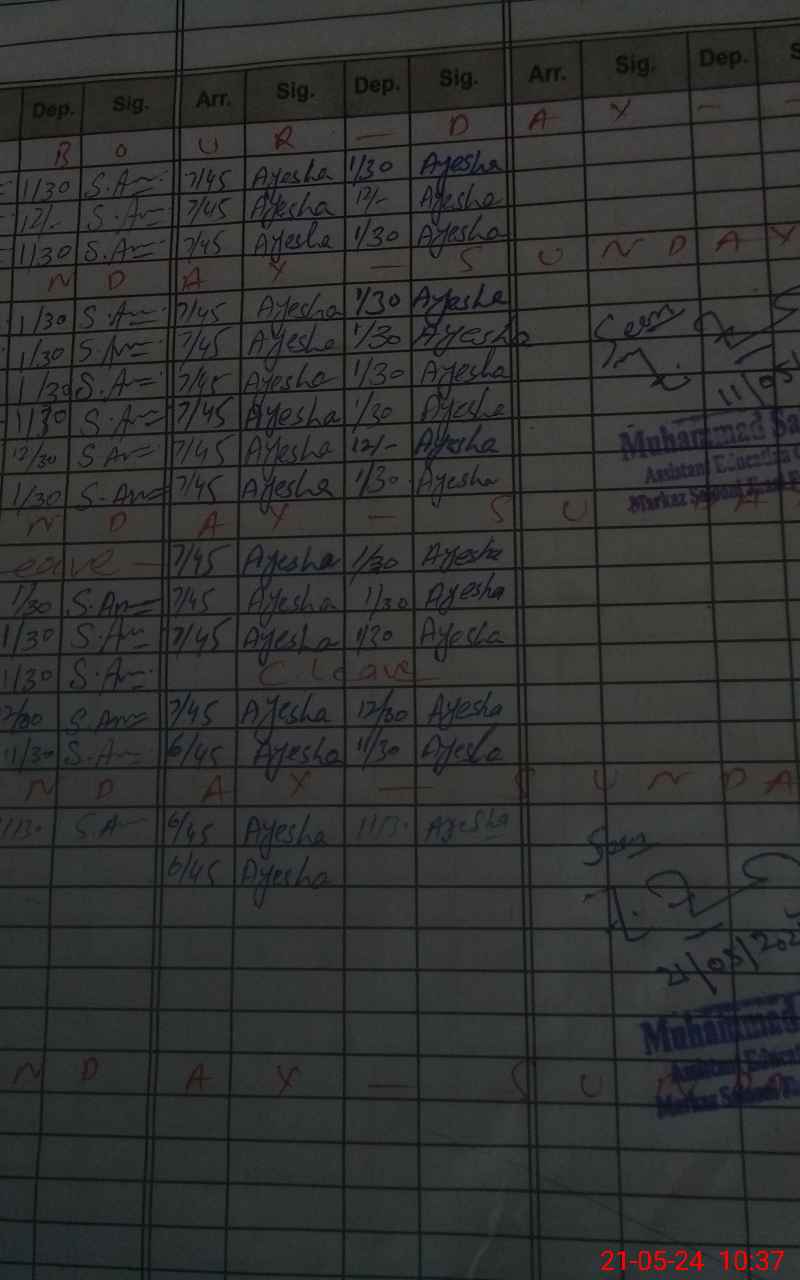 Dep. Sig. Arr. Sig. Dep. Sig. Arr. Sig. Dep. S
B O U R — D A Y — -
1/30 S.Am 7/45 Ayesha 1/30 Ayesha
12/- S.Am 7/45 Ayesha 12/- Ayesha
1/30 S.Am 7/45 Ayesha 1/30 Ayesha
N D A Y — S U N D A Y
1/30 S.Am 7/45 Ayesha 1/30 Ayesha
1/30 S.Am 7/45 Ayesha 1/30 Ayesha Seen
1/30 S.Am 7/45 Ayesha 1/30 Ayesha
11/05/
1/30 S.Am 7/45 Ayesha 1/30 Ayesha
Muhammad Sa
12/30 S Am 7/45 Ayesha 12/- Ayesha
Assistant Education
1/30 S.Am 7/45 Ayesha 1/30 Ayesha
Markaz
N D A Y — S U
eave — 7/45 Ayesha 1/30 Ayesha
1/30 S.Am 7/45 Ayesha 1/30 Ayesha
1/30 S.Am 7/45 Ayesha 1/30 Ayesha
1/30 S.Am C.Leave
12/30 S.Am 7/45 Ayesha 12/30 Ayesha
11/30 S.Am 6/45 Ayesha 11/30 Ayesha
N D A Y — S U N D A
11/30 S.A 6/45 Ayesha 11/30 Ayesha
Seen
6/45 Ayesha
21/05/202
Muhammad
Assistant Educat
Markaz
N D A Y — S U
21-05-24 10:37